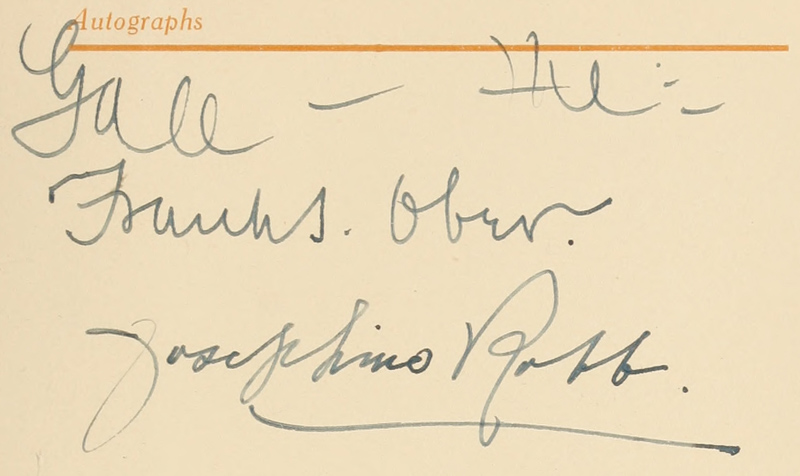 Autographs
Gall —
Frank S. Ober.
Josephine Robb.